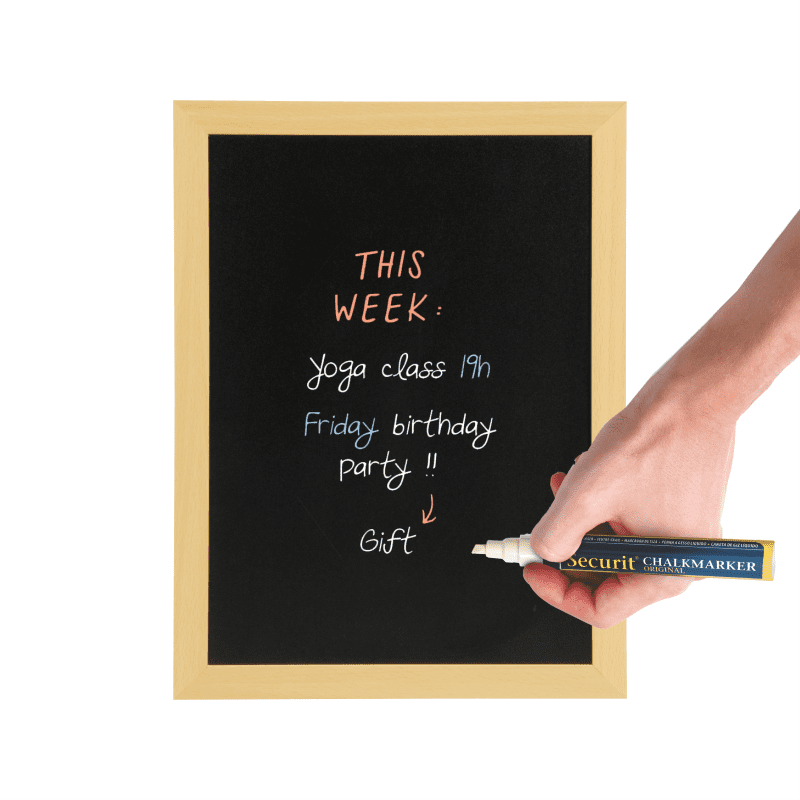 THIS
WEEK:
Yoga class 19h
Friday birthday
party !!
Gift
Securit® CHALKMARKER
ORIGINAL